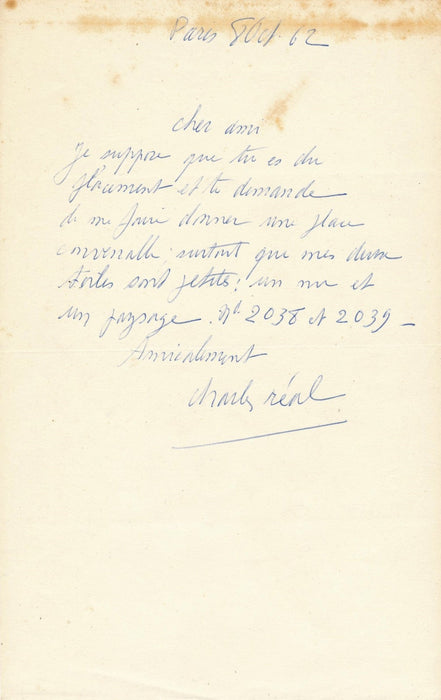 Paris 8 Oct. 62
cher ami
Je suppose que tu es du
placement et te demande
de me faire donner une place
convenable; surtout que mes deux
toiles sont petites; un nu et
un paysage. Nº 2038 et 2039 _
Amicalement
charles réal